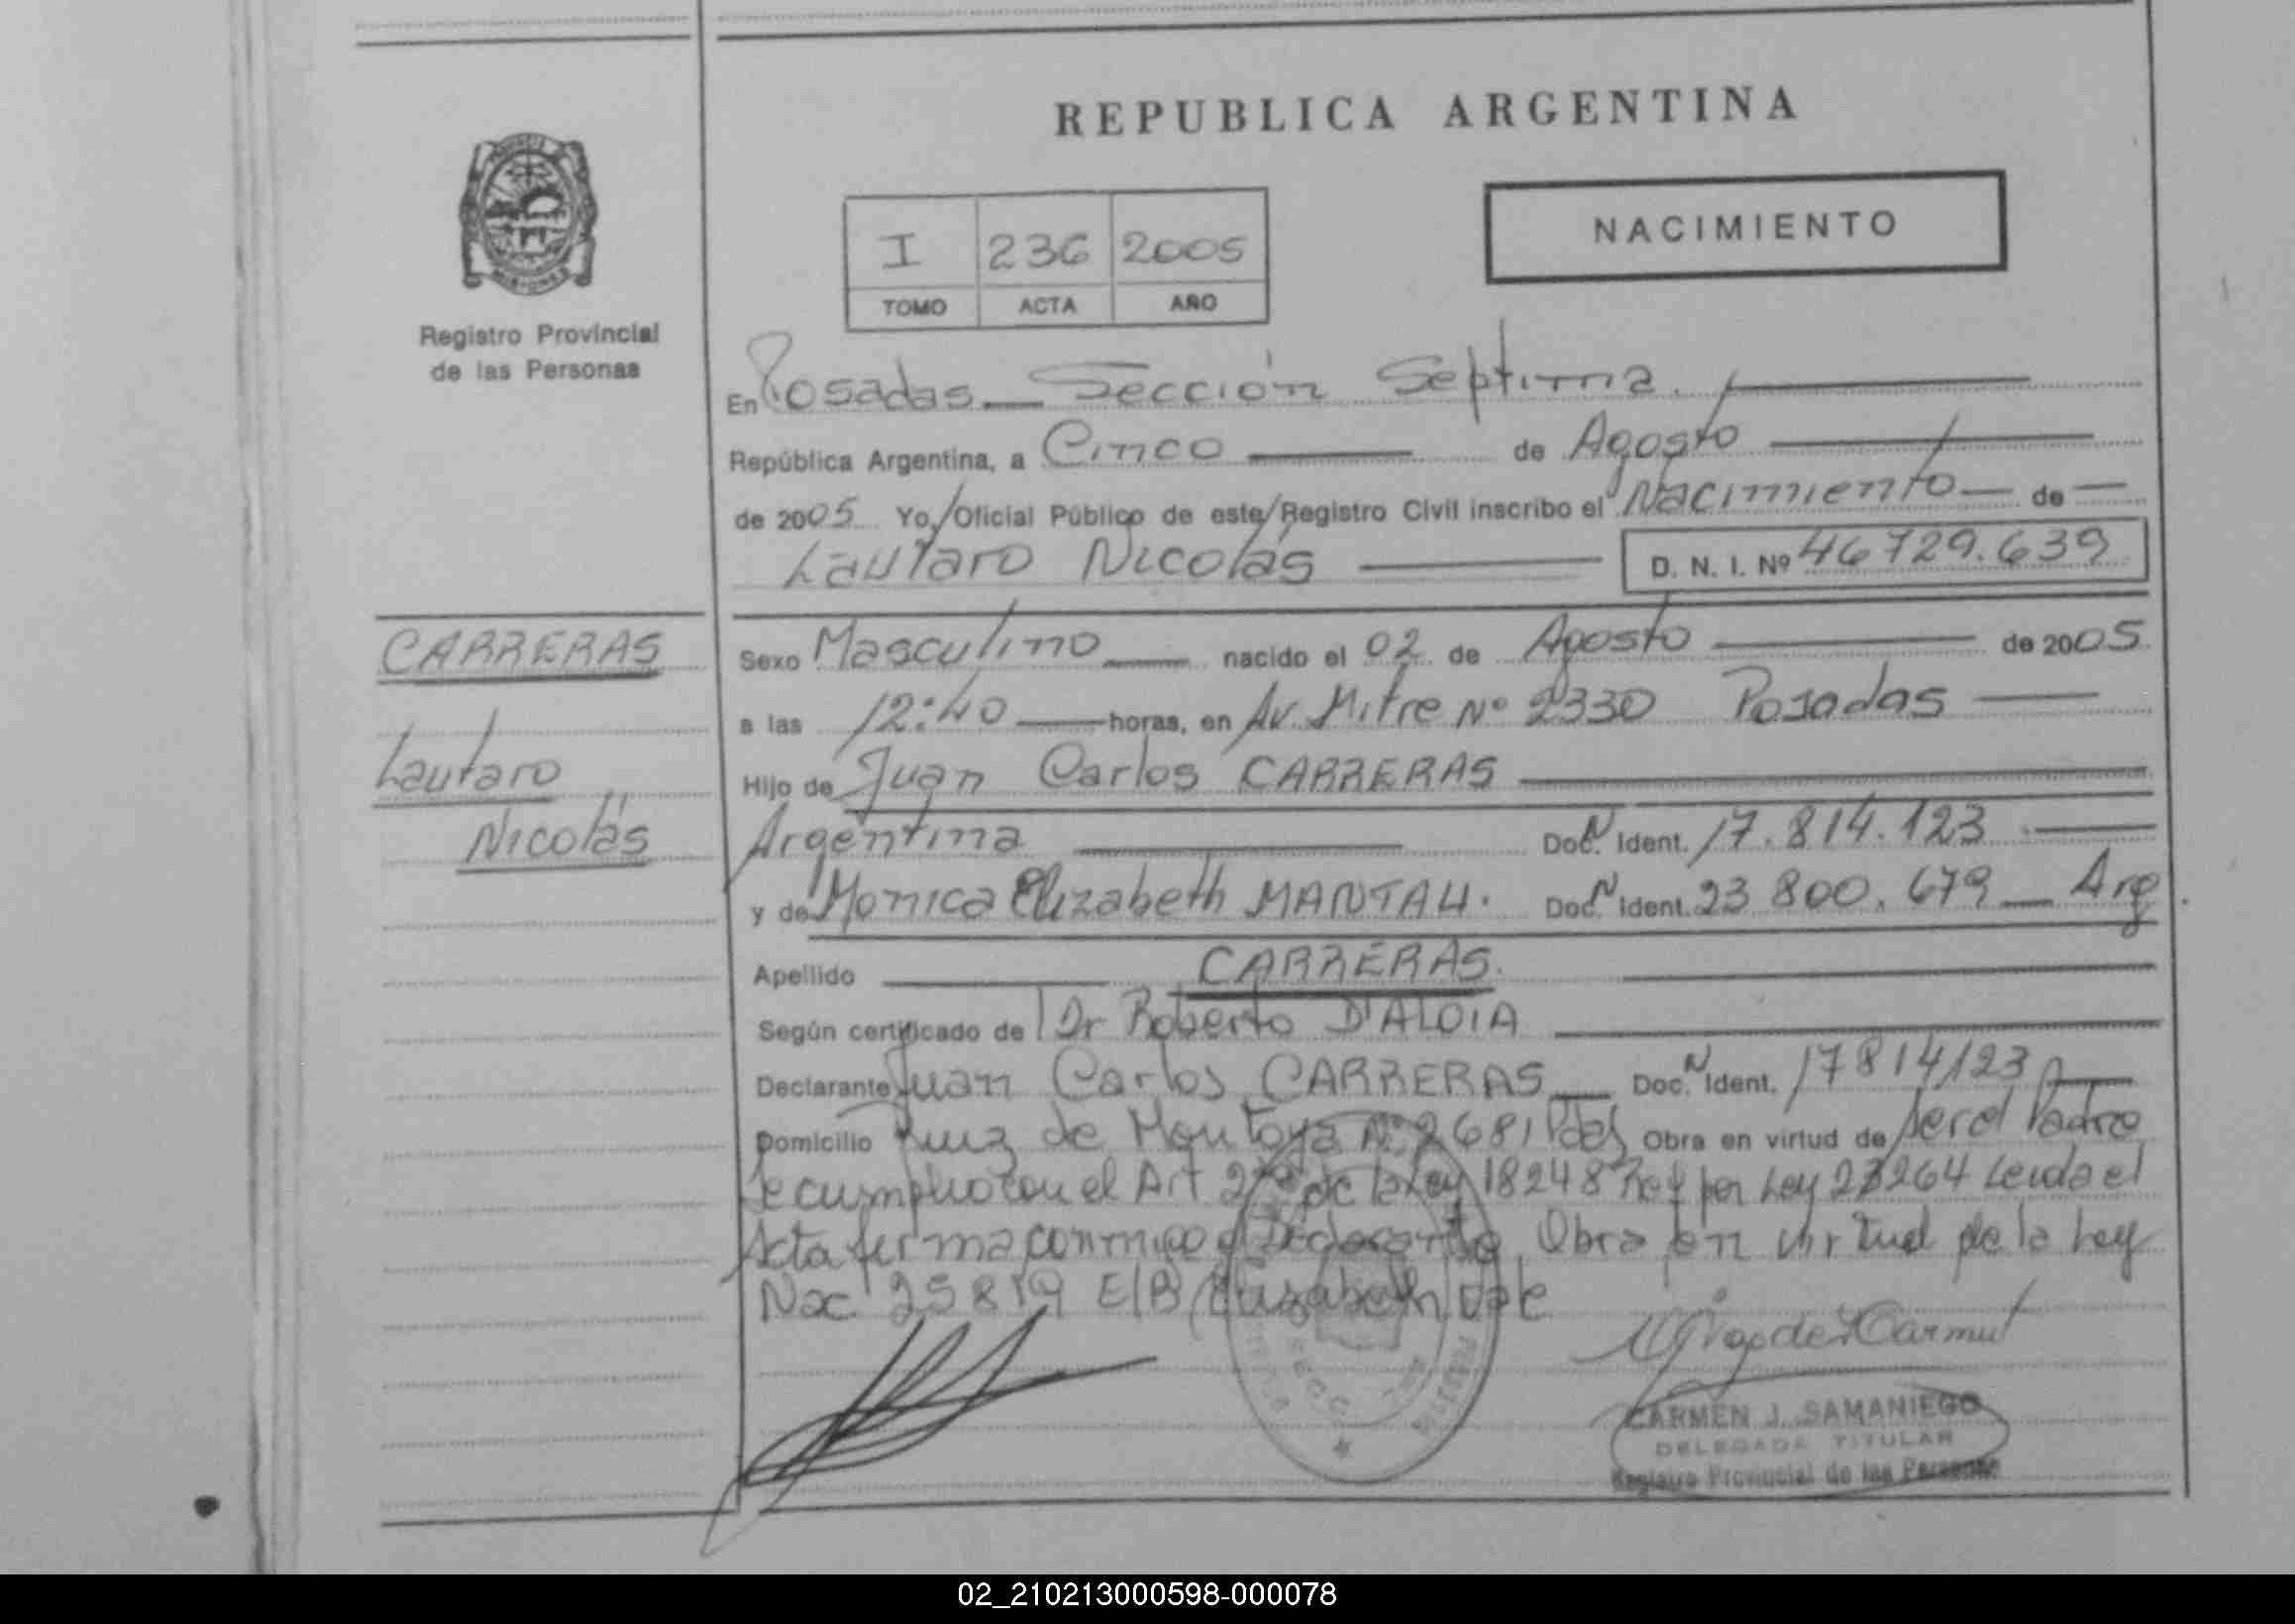 REPUBLICA ARGENTINA
NACIMIENTO
I 236 2005
TOMO ACTA AÑO
Registro Provincial
de las Personas
En Posadas Sección Septima.
República Argentina, a Cinco de Agosto
de 2005 Yo, Oficial Público de este Registro Civil inscribo el Nacimiento de
Lautaro Nicolás D. N. I. Nº 46729.639
CARRERAS
Lautaro
Nicolás
Sexo Masculino nacido el 02 de Agosto de 2005
a las 12:40 horas, en Av. Mitre Nº 2330 Posadas
Hijo de Juan Carlos CARRERAS
Argentina Doc. N Ident. 17.814.123
y de Monica Elizabeth Doc. N Ident. 23 800.679 Arg.
Apellido CARRERAS.
Según certificado de Dr Roberto D'ALOIA
Declarante Juan Carlos CARRERAS Doc. N Ident. 17814123
Domicilio Ruiz de Montoya Nº 2681 Pdas Obra en virtud de ser el Padre
Se cumplio con el Art 2 de la Ley 18248 por Ley 23264 Leida el
Acta firma conmigo el Declarante Obra en virtud de la Ley
Nac 25819 E/B Elizabeth vale
CARMEN J. SAMANIEGO
DELEGADA TITULAR
Registro Provincial de las Personas
02_210213000598-000078